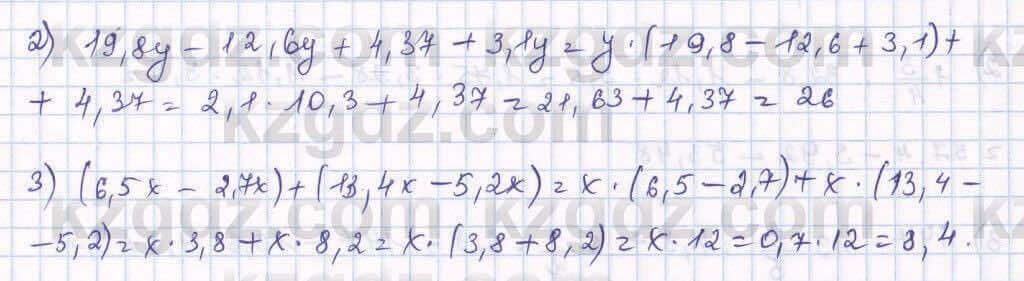 2) 19,8y - 12,6y + 4,37 + 3,1y = y · (19,8 - 12,6 + 3,1) +
+ 4,37 = 2,1 · 10,3 + 4,37 = 21,63 + 4,37 = 26
3) (6,5x - 2,7x) + (13,4x - 5,2x) = x · (6,5 - 2,7) + x · (13,4 -
- 5,2) = x · 3,8 + x · 8,2 = x · (3,8 + 8,2) = x · 12 = 0,7 · 12 = 8,4.
kzgdz.com